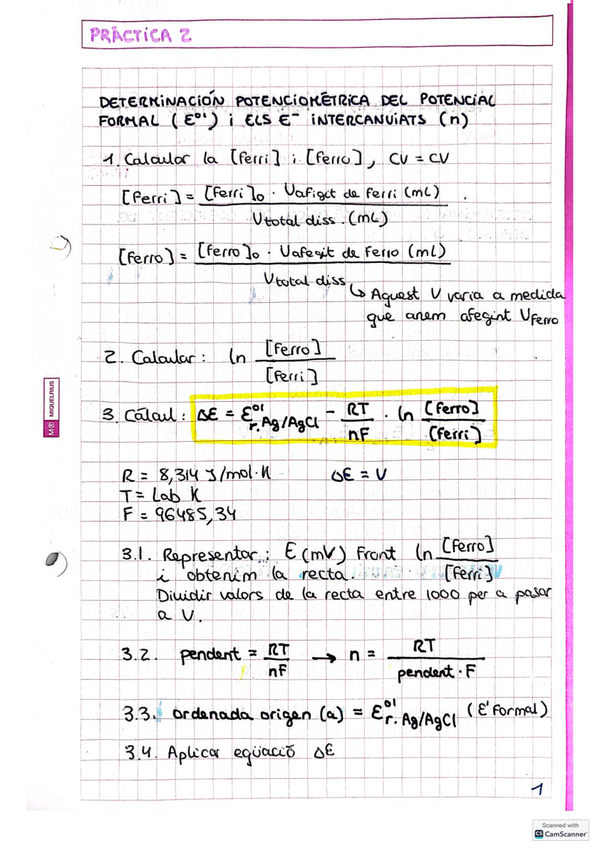 PRÀCTICA 2
DETERMINACIÓN POTENCIOMÉTRICA DEL POTENCIAL
FORMAL (E°') i ELS E⁻ INTERCANVIATS (n)
1. Calcular la [Ferri] i [Ferro], CV = CV
[Ferri] = [Ferri]₀ · Vafegit de Ferri (mL) / Vtotal diss. (mL)
[Ferro] = [Ferro]₀ · Vafegit de Ferro (mL) / Vtotal diss
↳ Aquest V varia a medida
que anem afegint VFerro
2. Calcular: ln [Ferro] / [Ferri]
3. Càlcul: ΔE = E°' r. Ag/AgCl − RT/nF · ln [Ferro]/[Ferri]
R = 8,314 J/mol·K ΔE = V
T = Lab K
F = 96485,34
3.1. Representar: E (mV) Front ln [Ferro]/[Ferri]
i obtenim la recta.
Dividir valors de la recta entre 1000 per a pasar
a V.
3.2. pendent = RT/nF → n = RT / pendent · F
3.3. ordenada origen (a) = E°' r. Ag/AgCl (E' Formal)
3.4. Aplicar equació ΔE
1
M® MIQUELRIUS
Scanned with
CS CamScanner